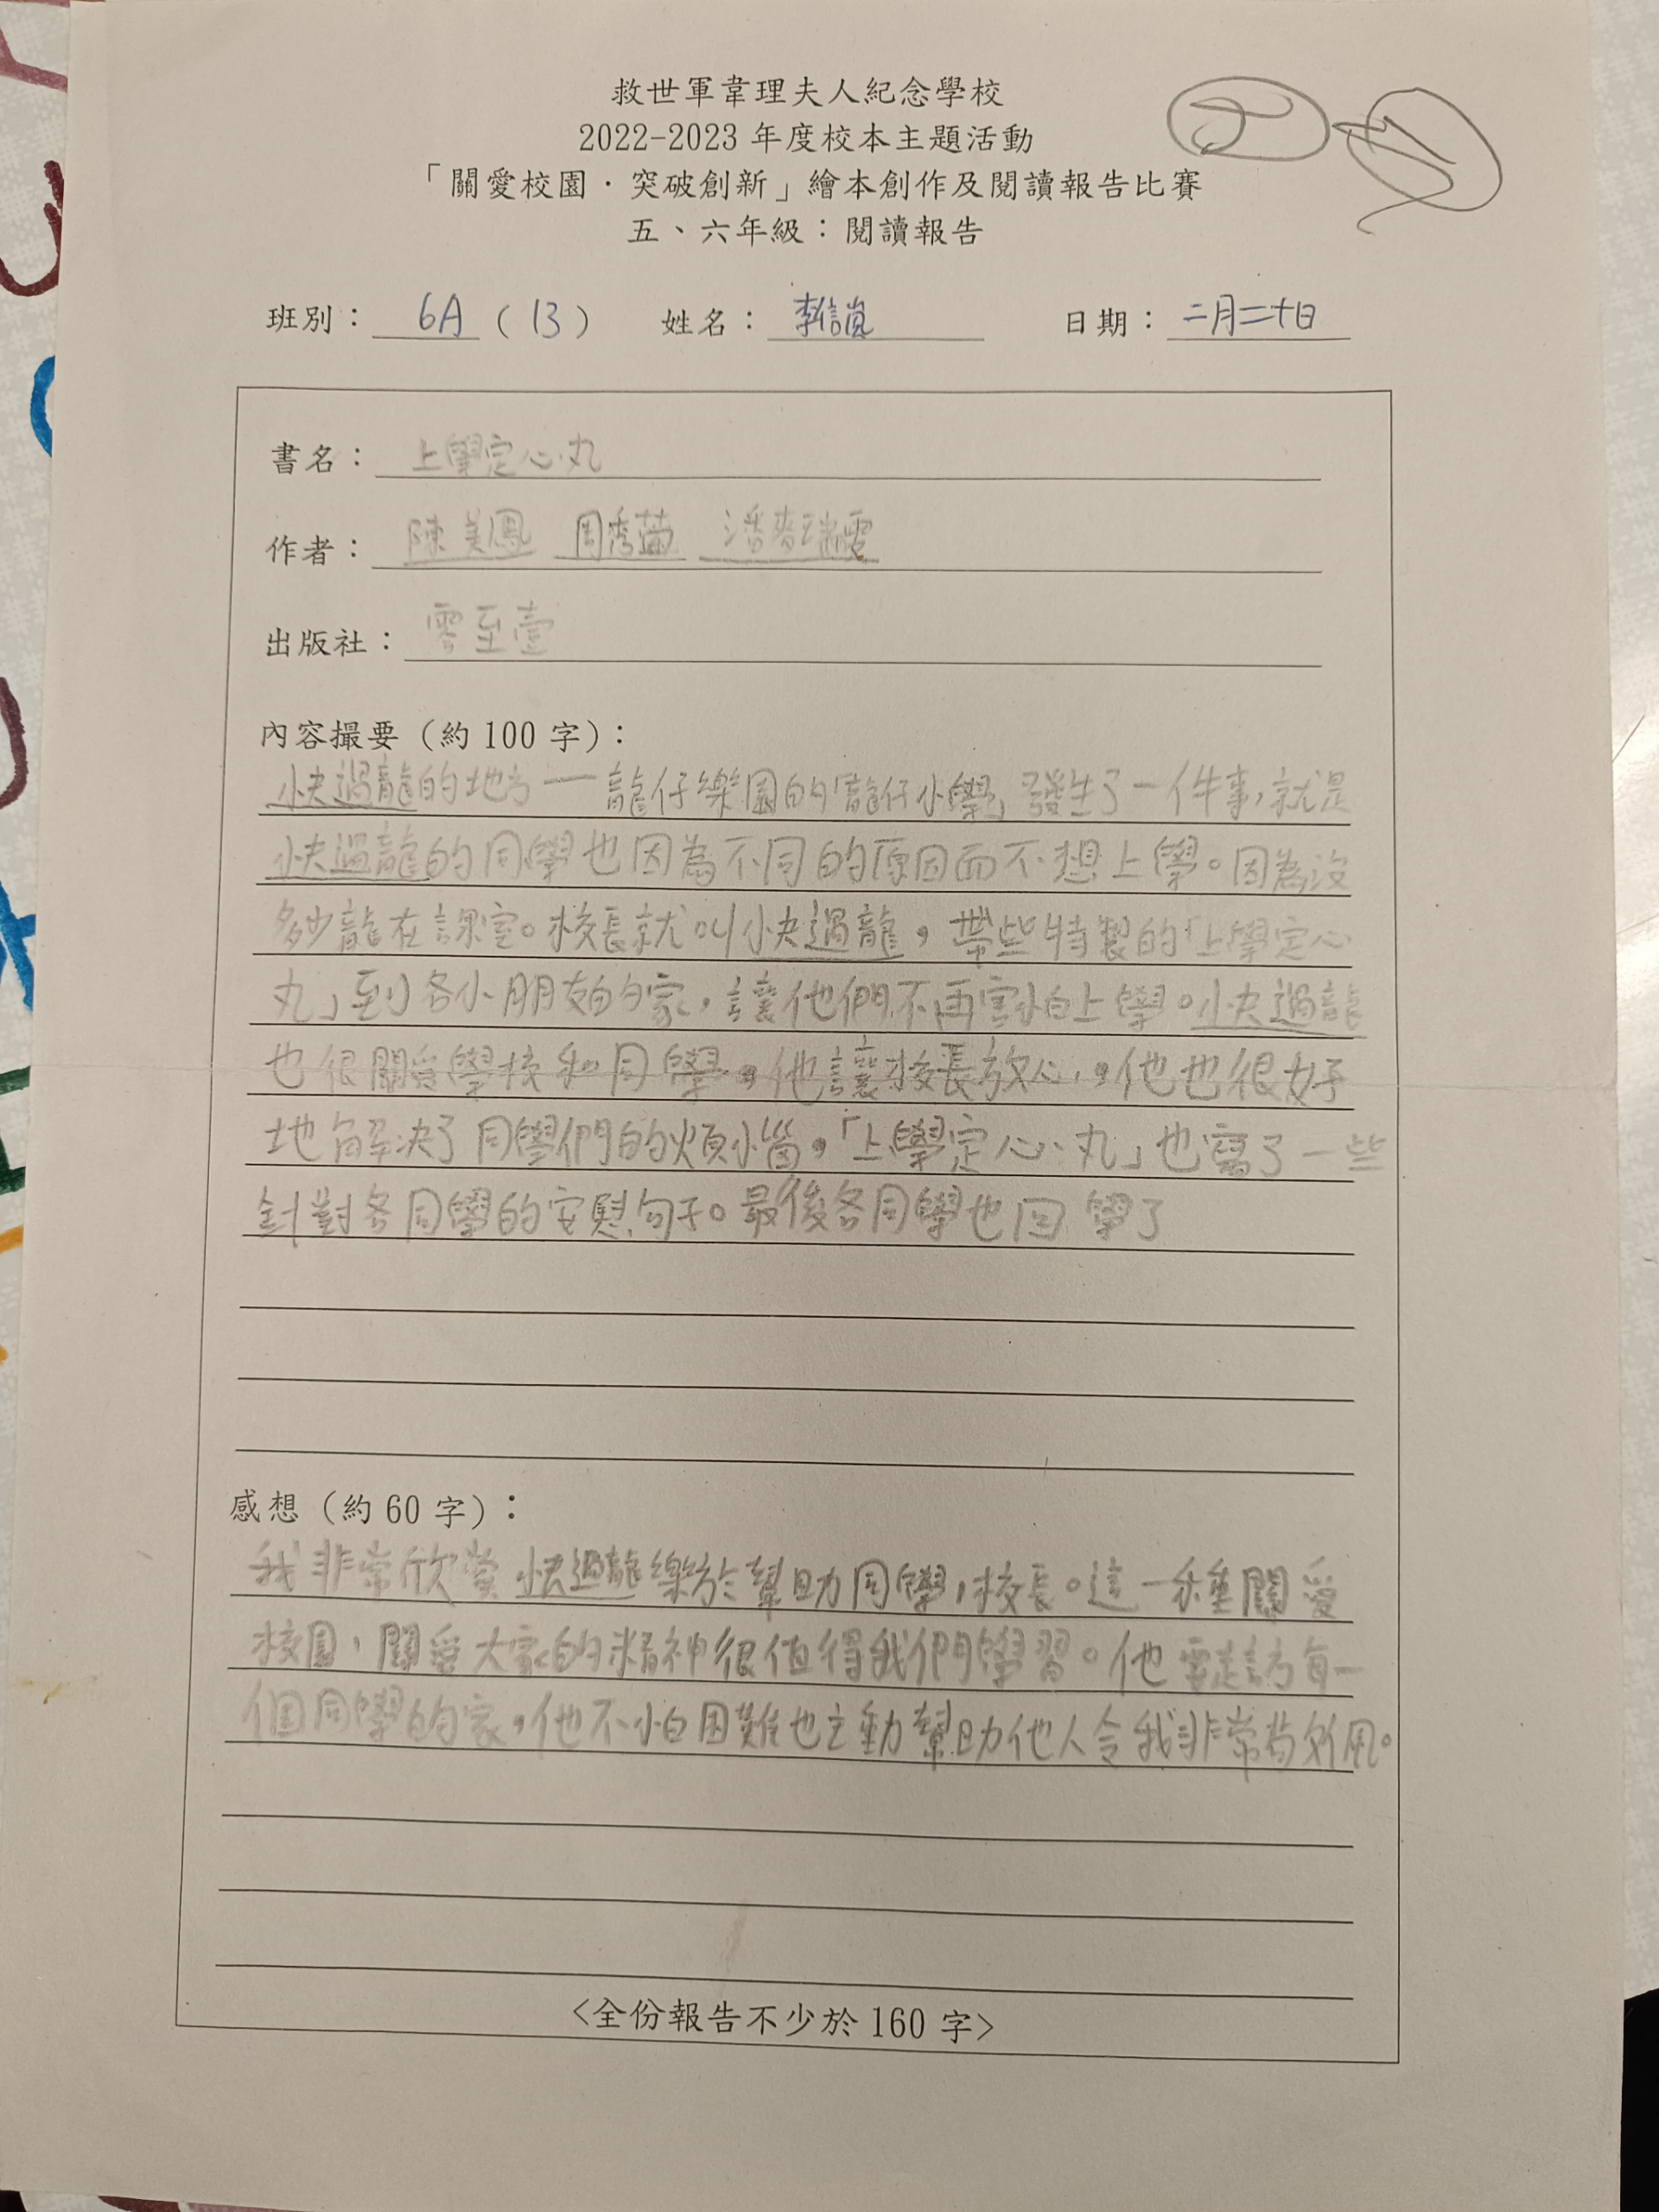 救世軍韋理夫人紀念學校
2022-2023 年度校本主題活動
「關愛校園．突破創新」繪本創作及閱讀報告比賽
五、六年級：閱讀報告
班別：6A（13） 姓名：李信 日期：二月二十日
書名：上學定心丸
作者：陳美鳳 周秀 潘麥瑞雯
出版社：零至壹
內容撮要（約 100 字）：
快過龍的地方一龍仔樂園的「龍仔小學」發生了一件事，就是
快過龍的同學也因為不同的原因而不想上學。因為沒
多少龍在課室。校長就叫快過龍，帶些特製的「上學定心
丸」到各小朋友的家，讓他們不再害怕上學。快過龍
也很關愛學校和同學，他讓校長放心，他也很好
地解決了同學們的煩惱，「上學定心丸」也寫了一些
針對各同學的安慰句子。最後各同學也回學了
感想（約 60 字）：
我非常欣賞快過龍樂於幫助同學，校長。這一種關愛
校園，關愛大家的精神很值得我們學習。他要走訪每一
個同學的家，他不怕困難也主動幫助他人令我非常
<全份報告不少於 160 字>